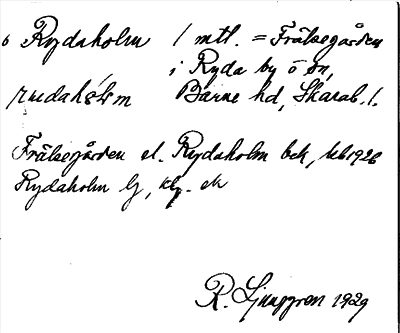 Rydaholm 1 mtl. = Frälsegården
i Ryda by o sn,
Barne hd, Skarab. l.
Frälsegården el. Rydaholm bek, kb 1926
Rydaholm lj, ek
R. Ljunggren 1929